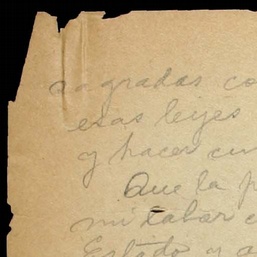 sagradas co
esas leyes
y hacer cu
Que la p
mi labor c
Estado y a